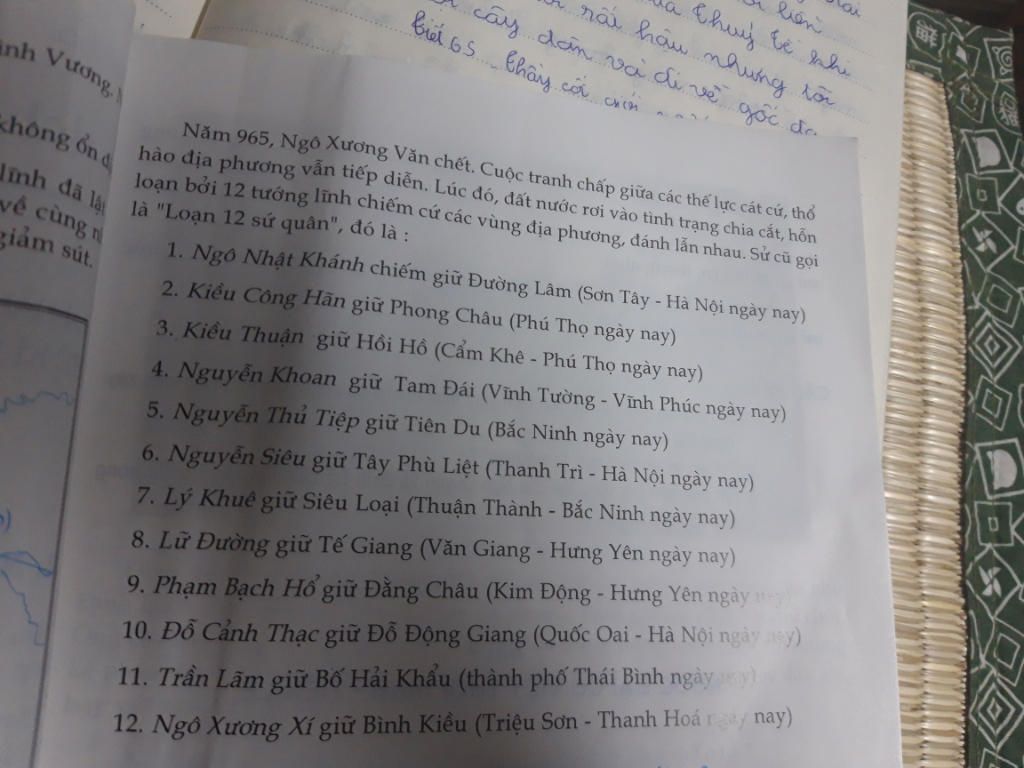 biết 65 thầy cối
cây dân và đi về gốc đa
rất hậu nhưng rồi
Thuỷ Tề khi
ình Vương,
không ổn đ
lĩnh đã lậ
về cùng n
giảm sút.
Năm 965, Ngô Xương Văn chết. Cuộc tranh chấp giữa các thế lực cát cứ, thổ
hào địa phương vẫn tiếp diễn. Lúc đó, đất nước rơi vào tình trạng chia cắt, hỗn
loạn bởi 12 tướng lĩnh chiếm cứ các vùng địa phương, đánh lẫn nhau. Sử cũ gọi
là "Loạn 12 sứ quân", đó là :
1. Ngô Nhật Khánh chiếm giữ Đường Lâm (Sơn Tây - Hà Nội ngày nay)
2. Kiều Công Hãn giữ Phong Châu (Phú Thọ ngày nay)
3. Kiều Thuận giữ Hồi Hồ (Cẩm Khê - Phú Thọ ngày nay)
4. Nguyễn Khoan giữ Tam Đái (Vĩnh Tường - Vĩnh Phúc ngày nay)
5. Nguyễn Thủ Tiệp giữ Tiên Du (Bắc Ninh ngày nay)
6. Nguyễn Siêu giữ Tây Phù Liệt (Thanh Trì - Hà Nội ngày nay)
7. Lý Khuê giữ Siêu Loại (Thuận Thành - Bắc Ninh ngày nay)
8. Lữ Đường giữ Tế Giang (Văn Giang - Hưng Yên ngày nay)
9. Phạm Bạch Hổ giữ Đằng Châu (Kim Động - Hưng Yên ngày nay)
10. Đỗ Cảnh Thạc giữ Đỗ Động Giang (Quốc Oai - Hà Nội ngày nay)
11. Trần Lãm giữ Bố Hải Khẩu (thành phố Thái Bình ngày nay)
12. Ngô Xương Xí giữ Bình Kiều (Triệu Sơn - Thanh Hoá ngày nay)